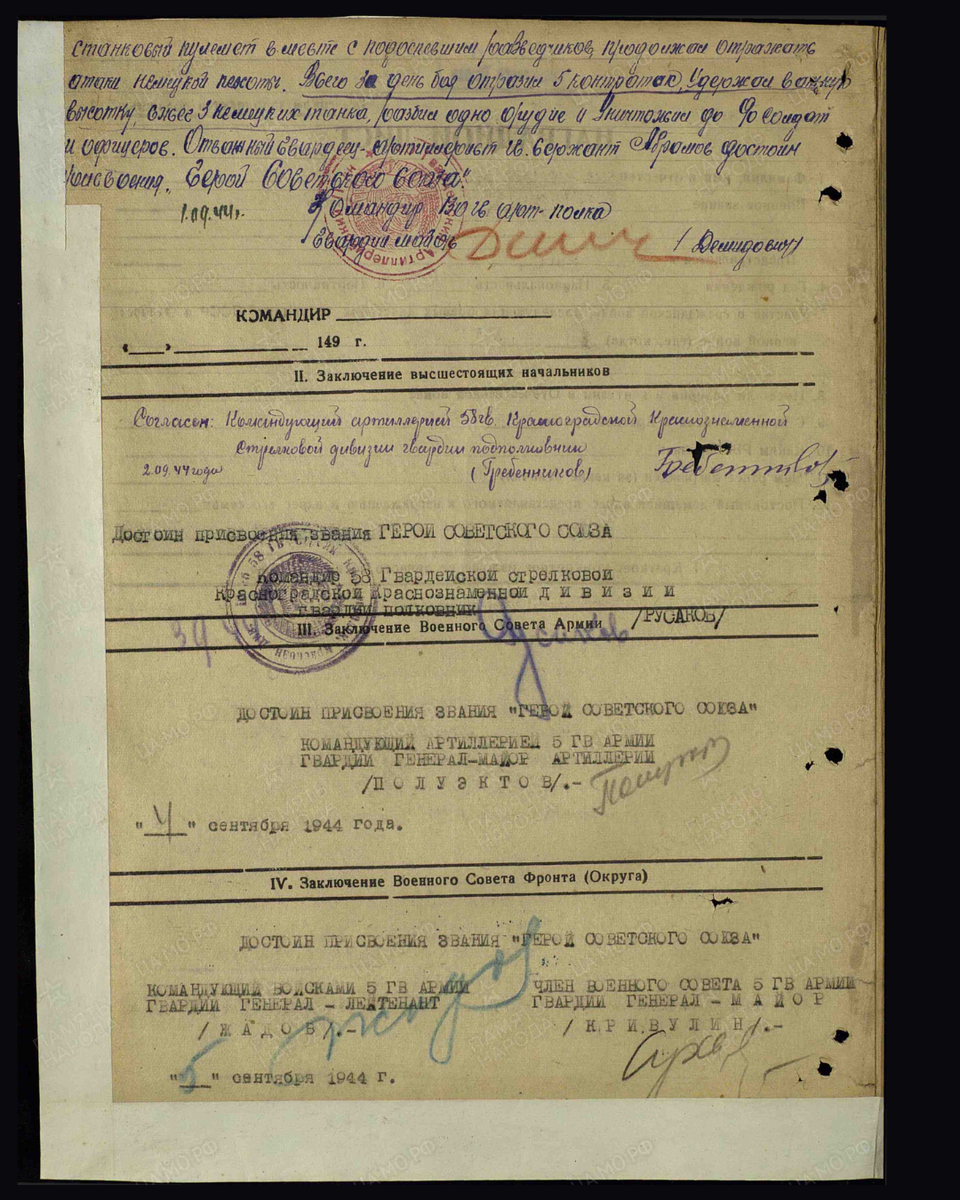 станковый пулемет вместе с подоспевшим разведчиков, продолжал отражать
атаки немецкой пехоты. Всего за день боя отразил 5 контратак, Удержал важную
высотку, сжег 3 немецких танка, разбил одно орудие и Уничтожил до солдат
и офицеров. Отважный Гвардеец-Артиллерист гв. Сержант Абрамов достоин
присвоения „Герой Советского Союза".
1.09.44г. Командир 130 гв. арт-полка
Гвардии майор / Демидович/
КОМАНДИР
«___» 149 г.
II. Заключение высшестоящих начальников
Согласен: Командующий артиллерией 58 гв. Красноградской Краснознаменной
Стрелковой дивизии гвардии подполковник
2.09.44 года (Гребенников) Гребенников
Достоин присвоения звания ГЕРОЙ СОВЕТСКОГО СОЮЗА
Командир 58 Гвардейской стрелковой
Красноградской Краснознаменной д и в и з и и
гвардии полковник
/РУСАКОВ/
Русаков
III. Заключение Военного Совета Армии
ДОСТОИН ПРИСВОЕНИЯ ЗВАНИЯ "ГЕРОЙ СОВЕТСКОГО СОЮЗА"
КОМАНДУЮЩИЙ АРТИЛЛЕРИЕЙ 5 ГВ АРМИИ
ГВАРДИИ ГЕНЕРАЛ-МАЙОР АРТИЛЛЕРИИ
/П О Л У Э К Т О В/.-
"4" сентября 1944 года.
IV. Заключение Военного Совета Фронта (Округа)
ДОСТОИН ПРИСВОЕНИЯ ЗВАНИЯ "ГЕРОЙ СОВЕТСКОГО СОЮЗА"
КОМАНДУЮЩИЙ ВОЙСКАМИ 5 ГВ АРМИИ ЧЛЕН ВОЕННОГО СОВЕТА 5 ГВ АРМИИ
ГВАРДИИ ГЕНЕРАЛ - ЛЕЙТЕНАНТ ГВАРДИИ ГЕНЕРАЛ - М А Й О Р
/ Ж А Д О В /.- / К Р И В У Л И Н /.-
Жадов
"5" сентября 1944 г.